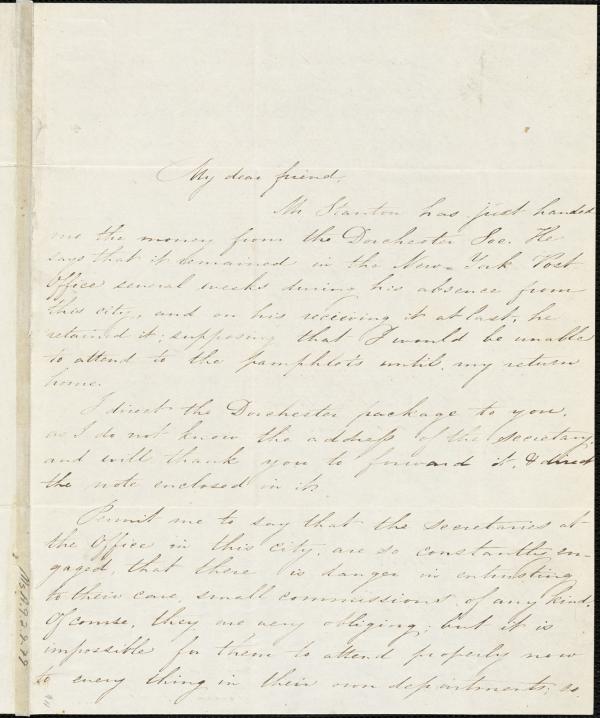 My dear friend,
Mr Stanton has just handed
me the money from the Dorchester Soc. He
says that it remained in the New-York Post
Office several weeks during his absence from
this city, and on his receiving it at last, he
retained it; supposing that I would be unable
to attend to the pamphlets until my return
home.
I direct the Dorchester package to you,
as I do not know the address of the secretary;
and will thank you to forward it, & direct
the note enclosed in it.
Permit me to say that the secretaries at
the Office in this city, are so constantly en-
gaged, that there is danger in entrusting
to their care, small commissions of any kind.
Of course, they are very obliging; but it is
impossible for them to attend properly now
to every thing in their own departments; so
Ms.A.9.2.9.29